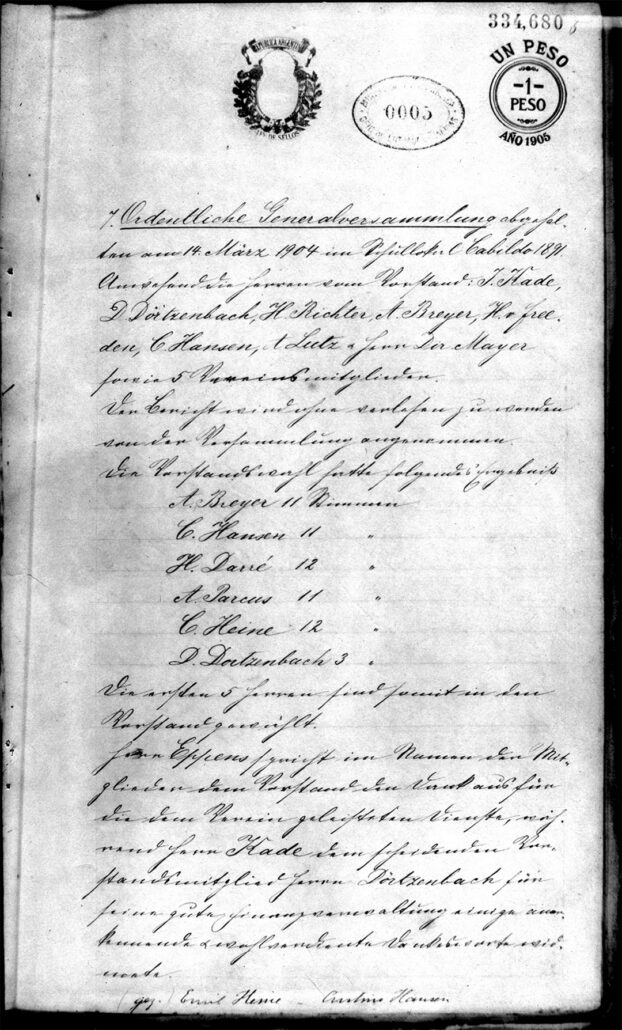 334,680
REPUBLICA ARGENTINA
0005
UN PESO
-1-
PESO
AÑO 1905
7. Ordentliche Generalversammlung abgehal-
ten am 14. März 1904 im Schullokal Cabildo 1891.
Anwesend die Herren vom Vorstand: J. Kade,
D. Dörtzenbach, H. Richter, A. Breyer, H. v. Free-
den, C. Hansen, A Lutz & Herr Dir Mayer
sowie 5 Vereinsmitglieder.
Der Bericht wird ohne verlesen zu werden
von der Versammlung angenommen.
Die Vorstandswahl hatte folgendes Ergebniß
A. Breyer 11 Stimmen
C. Hansen 11 "
H. Darré 12 "
A. Parcus 11 "
C. Heine 12 "
D. Dörtzenbach 3 "
Die ersten 5 Herren sind somit in den
Vorstand gewählt.
Herr Eppens spricht im Namen der Mit-
glieder dem Vorstand den Dank aus für
die dem Verein geleisteten Dienste, wäh-
rend Herr Kade dem scheidenden Vor-
standsmitglied Herrn Dörtzenbach für
seine gute Finanzverwaltung einige aner-
kennende & wohlverdiente Dankesworte wid-
mete.
(gez.) Emil Heine - Hansen